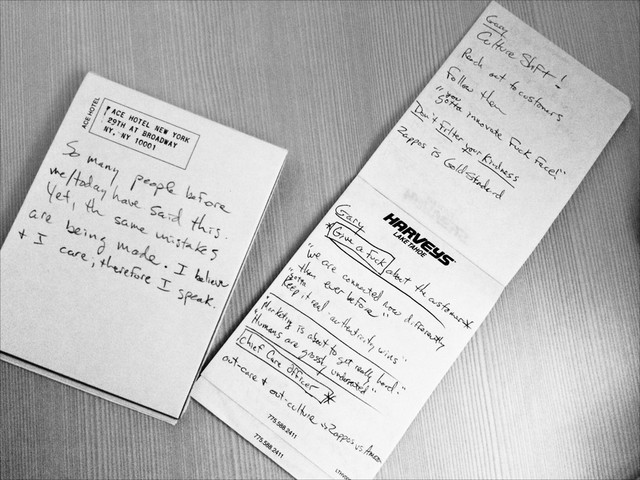 ACE HOTEL
ACE HOTEL NEW YORK
29TH AT BROADWAY
NY, NY 10001
So many people before
me/today have said this.
Yet, th same mistakes
are being made. I believe
+ I care, therefore I speak.
Gary
Culture Shift!
Reach out to customers
Follow them
"you gotta innovate Fuck Face!"
Don't Filter your Kindness
Zappos is Gold-Standard
HARVEYS
LAKE TAHOE
Gary
*Give a Fuck about the customer*
"We are connected now differently
then ever before"
"gotta Keep it real - authenticity wins"
"Marketing is about to get really hard."
"Humans are grossly underrated"
Chief Care Officer *
out-care + out-culture → Zappos vs. Amazon
775.588.2411
775.588.2411